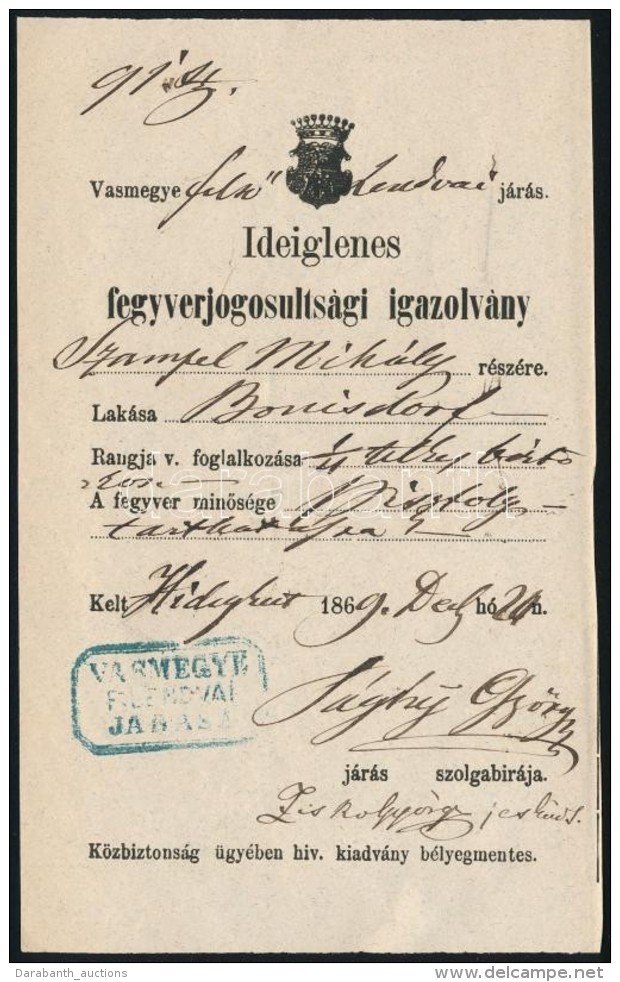 91 sz.
Vasmegye felső Lendvai járás.
Ideiglenes
fegyverjogosultsági igazolvány
Szampel Mihály részére.
Lakása Bonisdorf
Rangja v. foglalkozása telkes
A fegyver minősége pisztoly
tarthatására
Kelt Hidegkut 1869. Dec hó 20n.
VASMEGYE
F. LENDVAI
JÁRÁSA
Sághy György
járás szolgabirája.
jesküdt.
Közbiztonság ügyében hiv. kiadvány bélyegmentes.
darabanth
Darabanth_auctions
delcampe.net